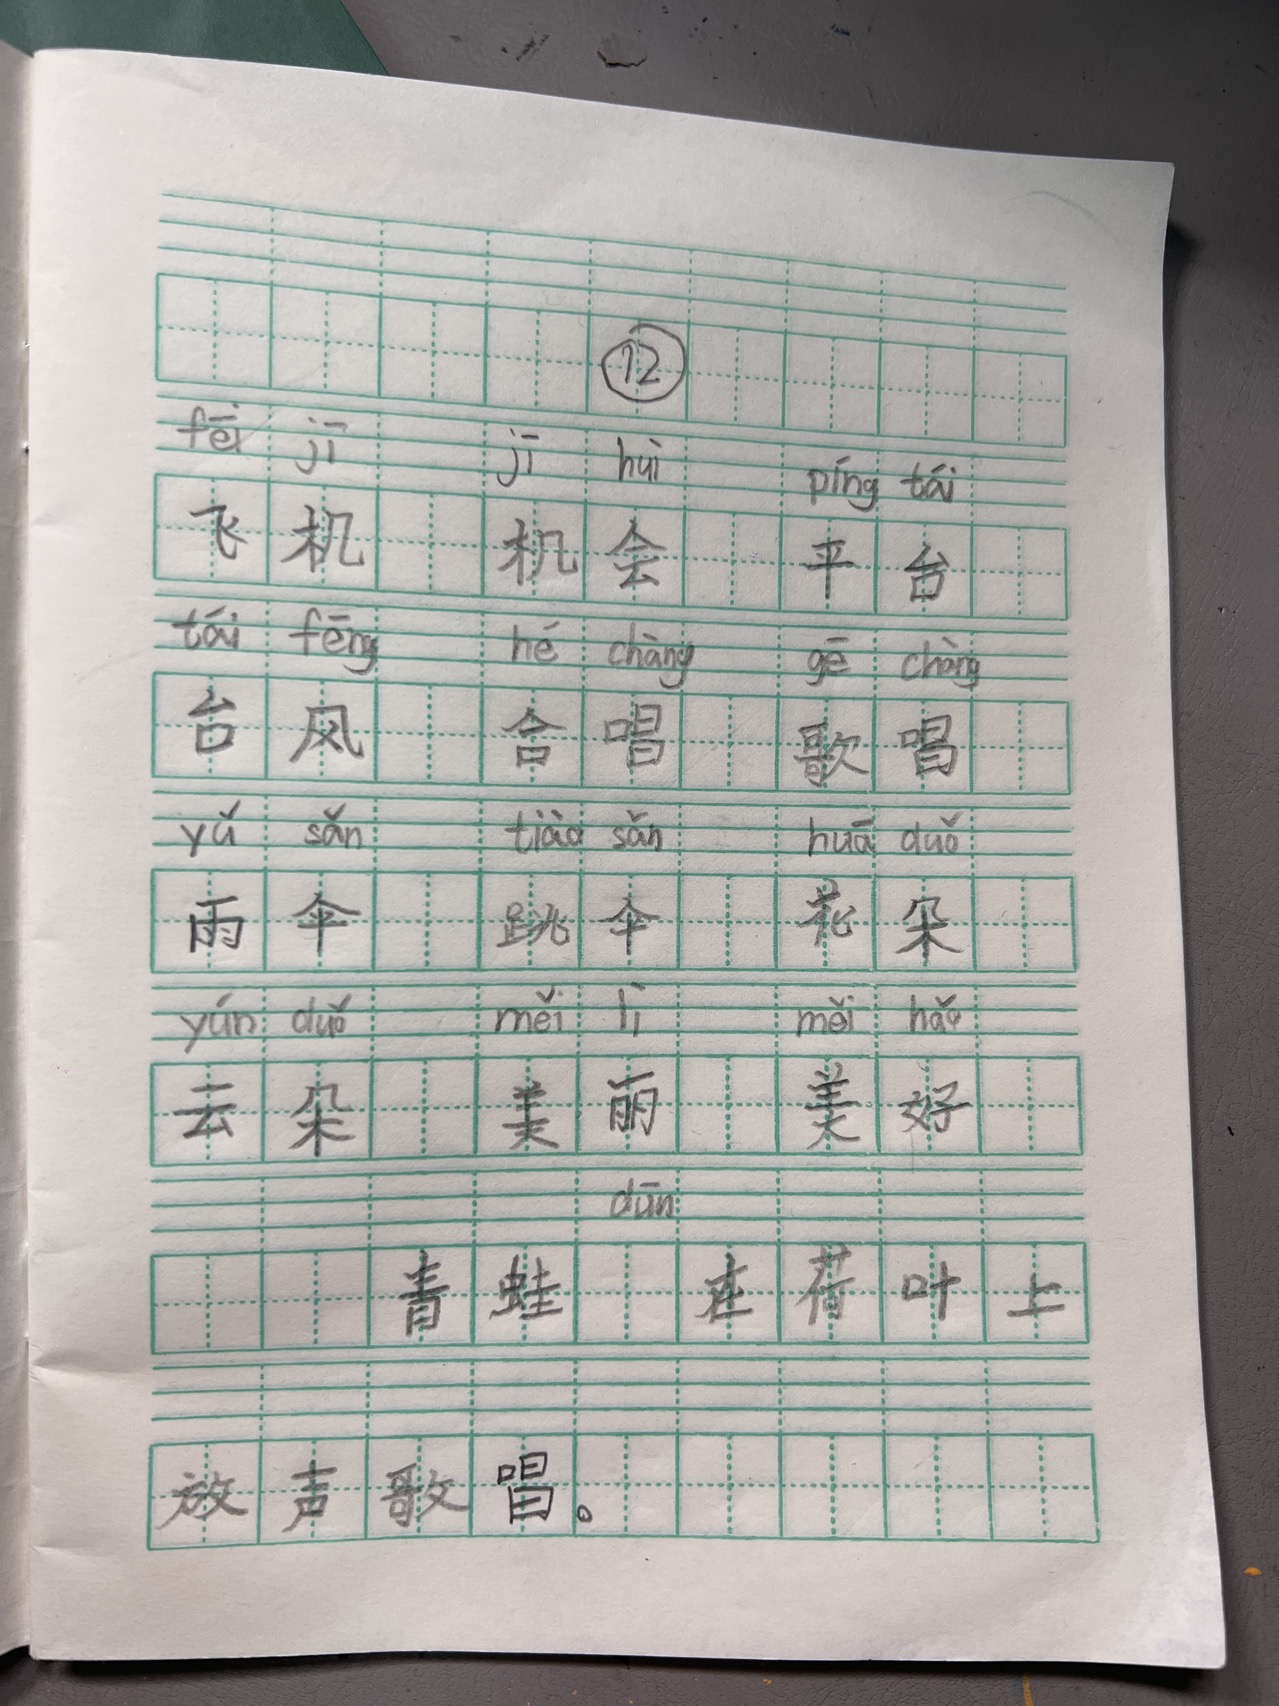 12
fēi jī jī huì píng tái
飞机 机会 平台
tái fēng hé chàng gē chàng
台风 合唱 歌唱
yǔ sǎn tiào sǎn huā duǒ
雨伞 跳伞 花朵
yún duǒ měi lì měi hǎo
云朵 美丽 美好
dūn
青蛙 在荷叶上
放声歌唱。